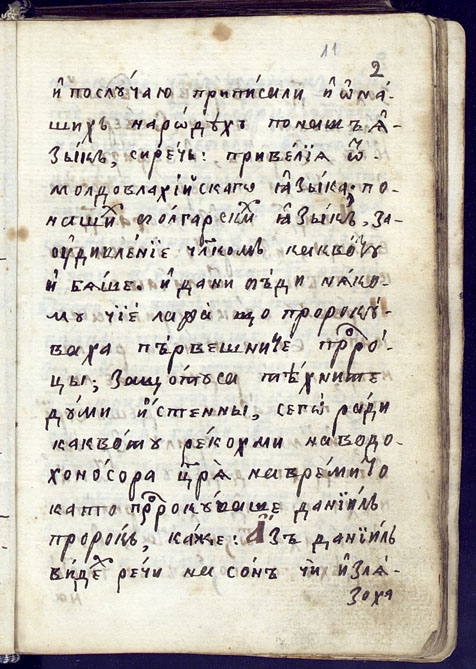 11
2
и҆ послꙋчаю приписали и҆ ѡ҆ на-
шихъ народꙋхъ по нашъ ѧ҆-
зыкъ, сиречь: привелїѧ ѿ
молдовлахїйскаго ѧ҆зыка, по-
нашїй молгарскїй ѧ҆зыкъ, за-
ѹ҆дивленїе чл҃комъ каквото
и҆ бѧше. и҆ дани пъди нѧко-
мꙋ чїе лафъ що пророкꙋ-
ваха първешните прⷪ҇ро-
цы; защотꙋса тѣхните
дꙋми и҆стенны, сегѡ ради
каквотꙋ рекохми наводо-
хоносора цр҃ѧ на времито
като прⷪ҇рокꙋваше данїилъ
пророкъ, каже: А҆зъ данїилъ
видѣⷯ речи на сонъ чи и҆злѧ-
зоха